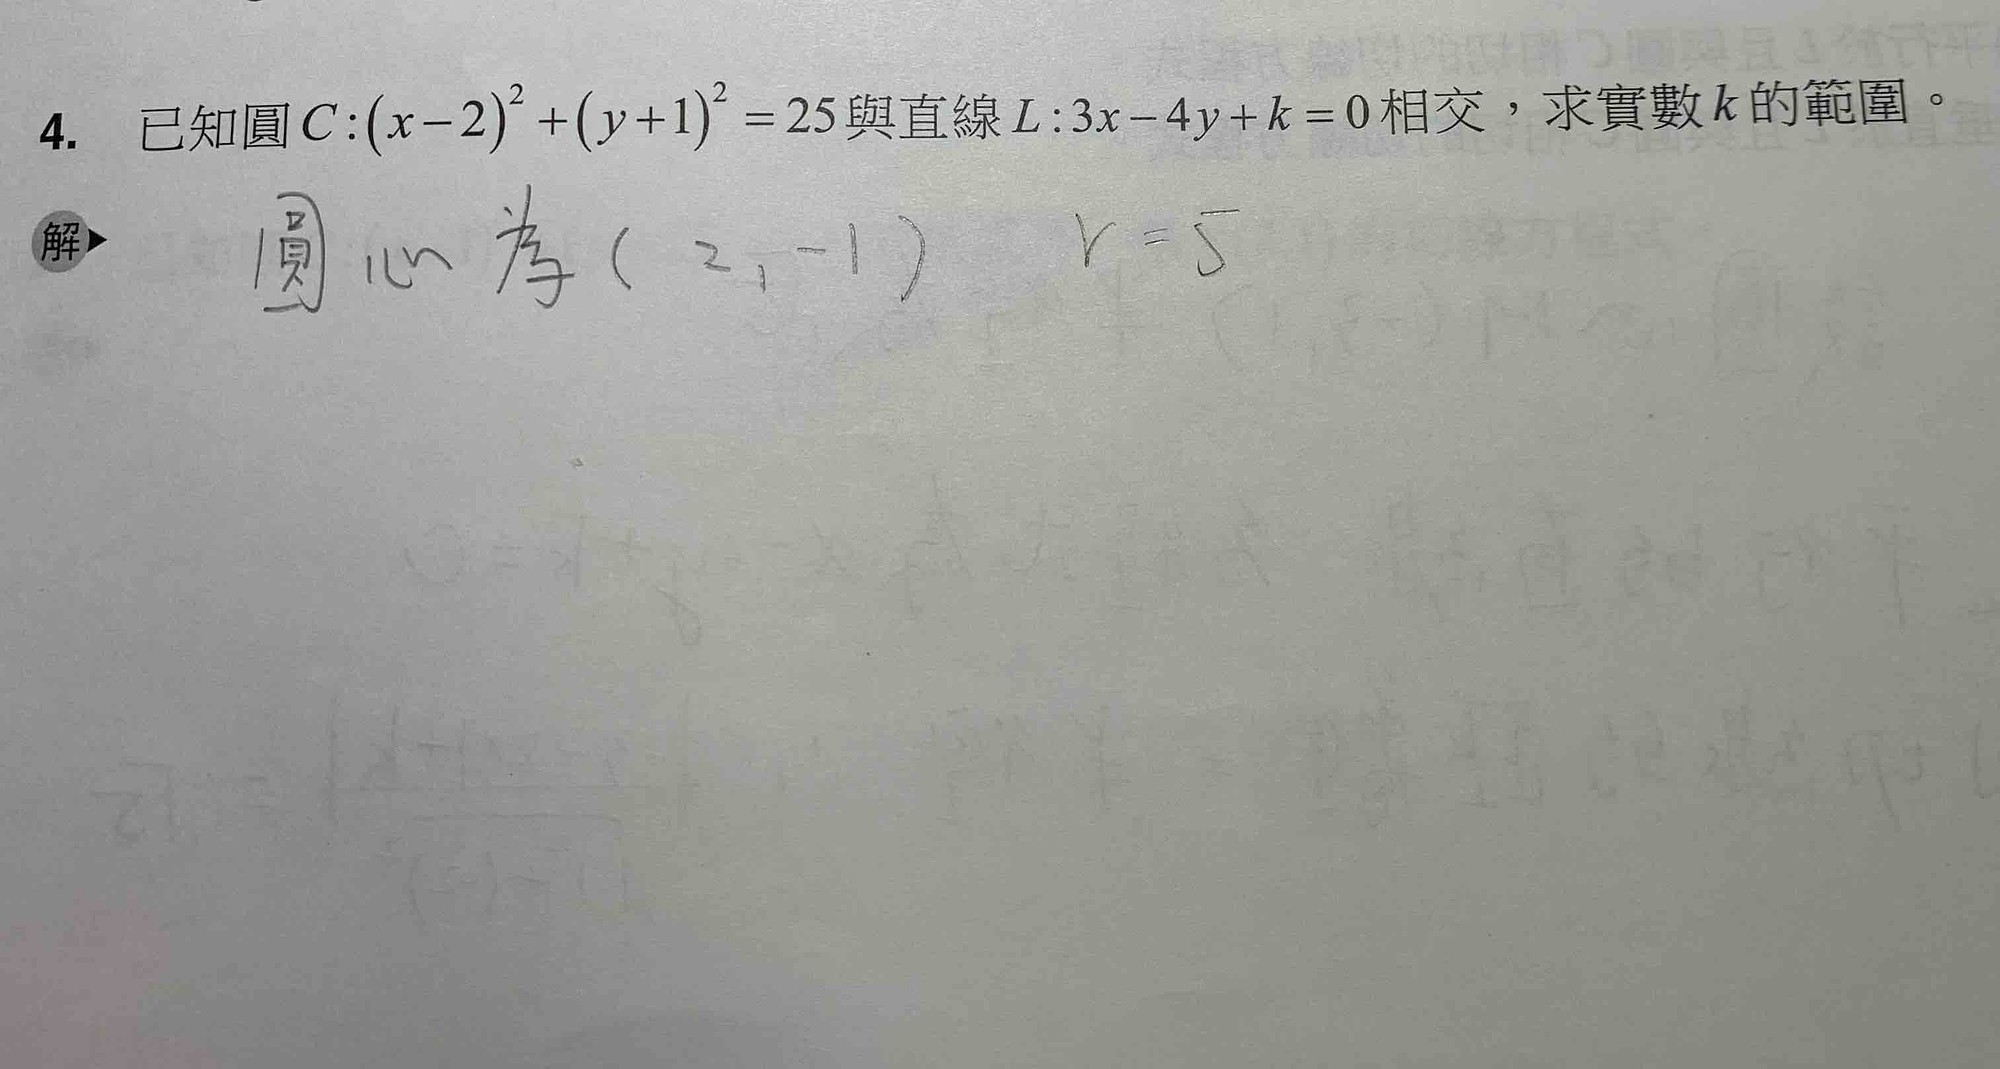 4. 已知圓C:(x-2)²+(y+1)²=25與直線L:3x-4y+k=0相交，求實數k的範圍。
解▶ 圓心為(2,-1) r=5